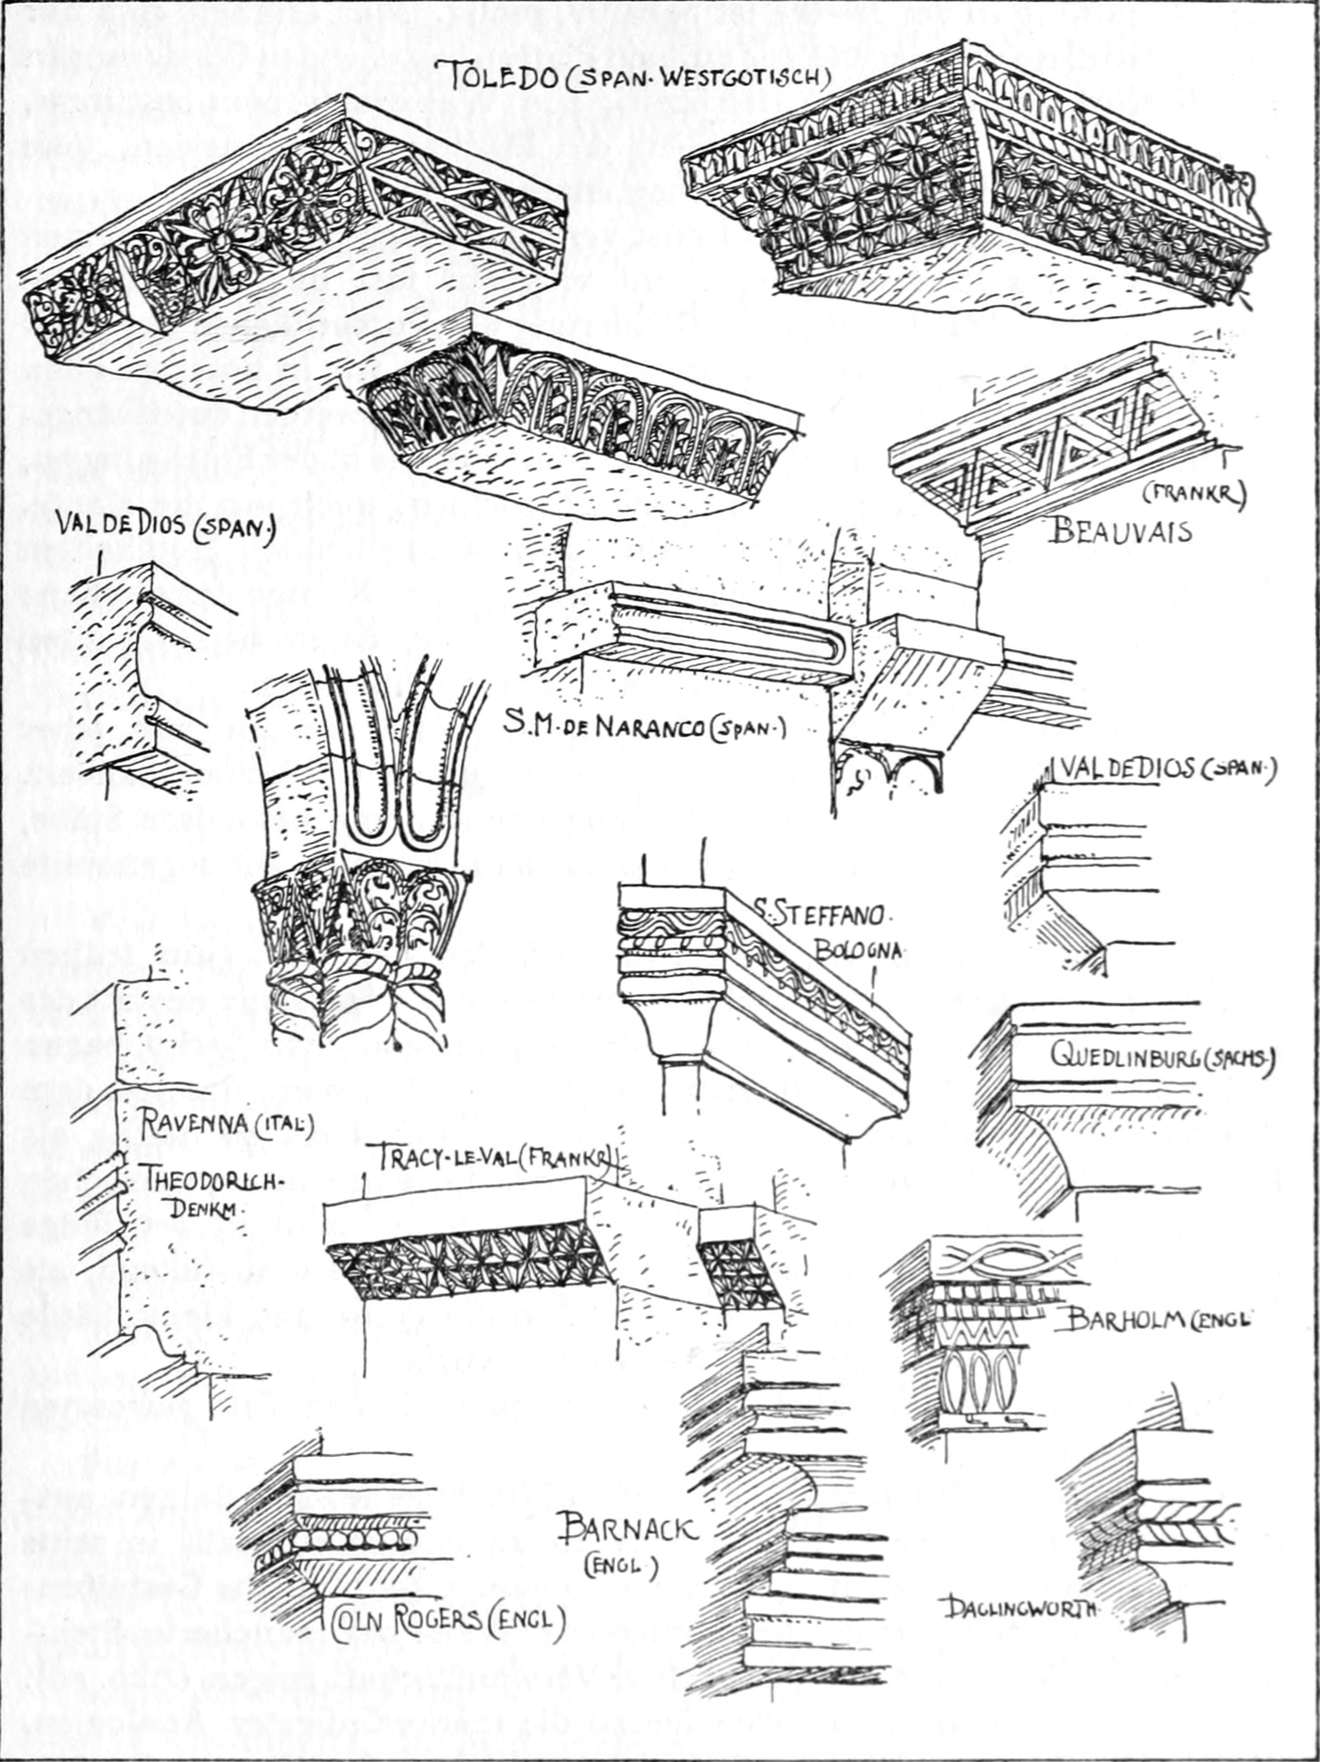 TOLEDO (SPAN. WESTGOTISCH)
(FRANKR)
BEAUVAIS
VAL DE DIOS (SPAN)
S.M. DE NARANCO (SPAN.)
VALDEDIOS (SPAN.)
S. STEFFANO.
BOLOGNA.
QUEDLINBURG (SACHS.)
RAVENNA (ITAL)
THEODORICH-
DENKM.
TRACY-LE-VAL (FRANKR)
BARHOLM (ENGL
BARNACK
(ENGL.)
COLN ROGERS (ENGL)
DAGLINGWORTH.